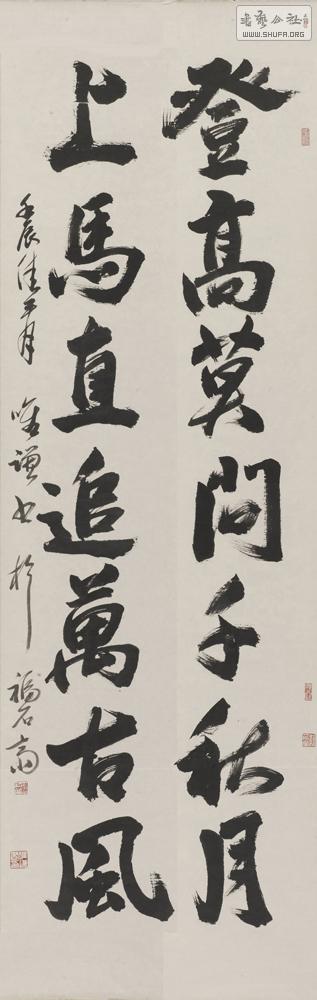 登高莫問千秋月
上馬直追萬古風
壬辰佳月 唯謙書於 福石齋
書藝公社
WWW.SHUFA.ORG